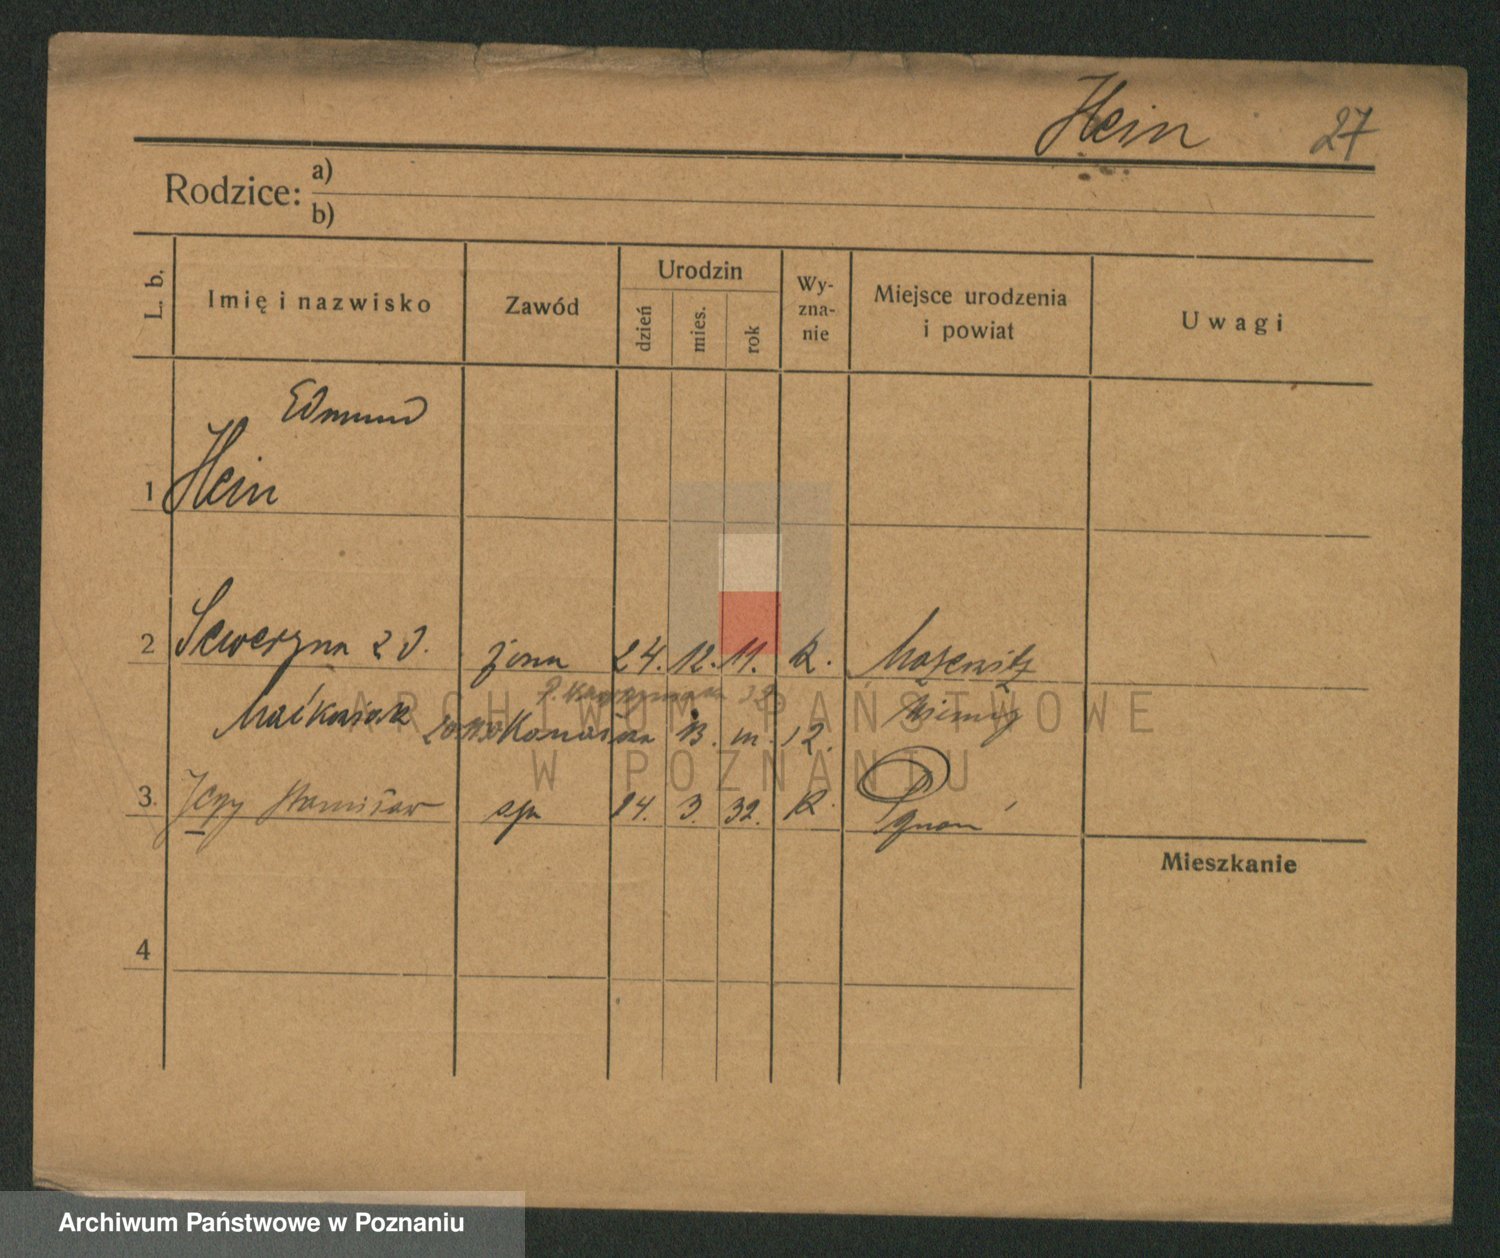 Hein 27
Rodzice: a)
b)
L. b.
Imię i nazwisko
Zawód
Urodzin
dzień
mies.
rok
Wy-
zna-
nie
Miejsce urodzenia
i powiat
Uwagi
Edmund
1 Hein
2 Seweryna z d. żona 24. 12. 11. k.
Niemcy
ARCHIWUM PAŃSTWOWE
W POZNANIU
3. Jerzy Stanisław syn 14. 3. 32. k. Poznań
Mieszkanie
4
Archiwum Państwowe w Poznaniu